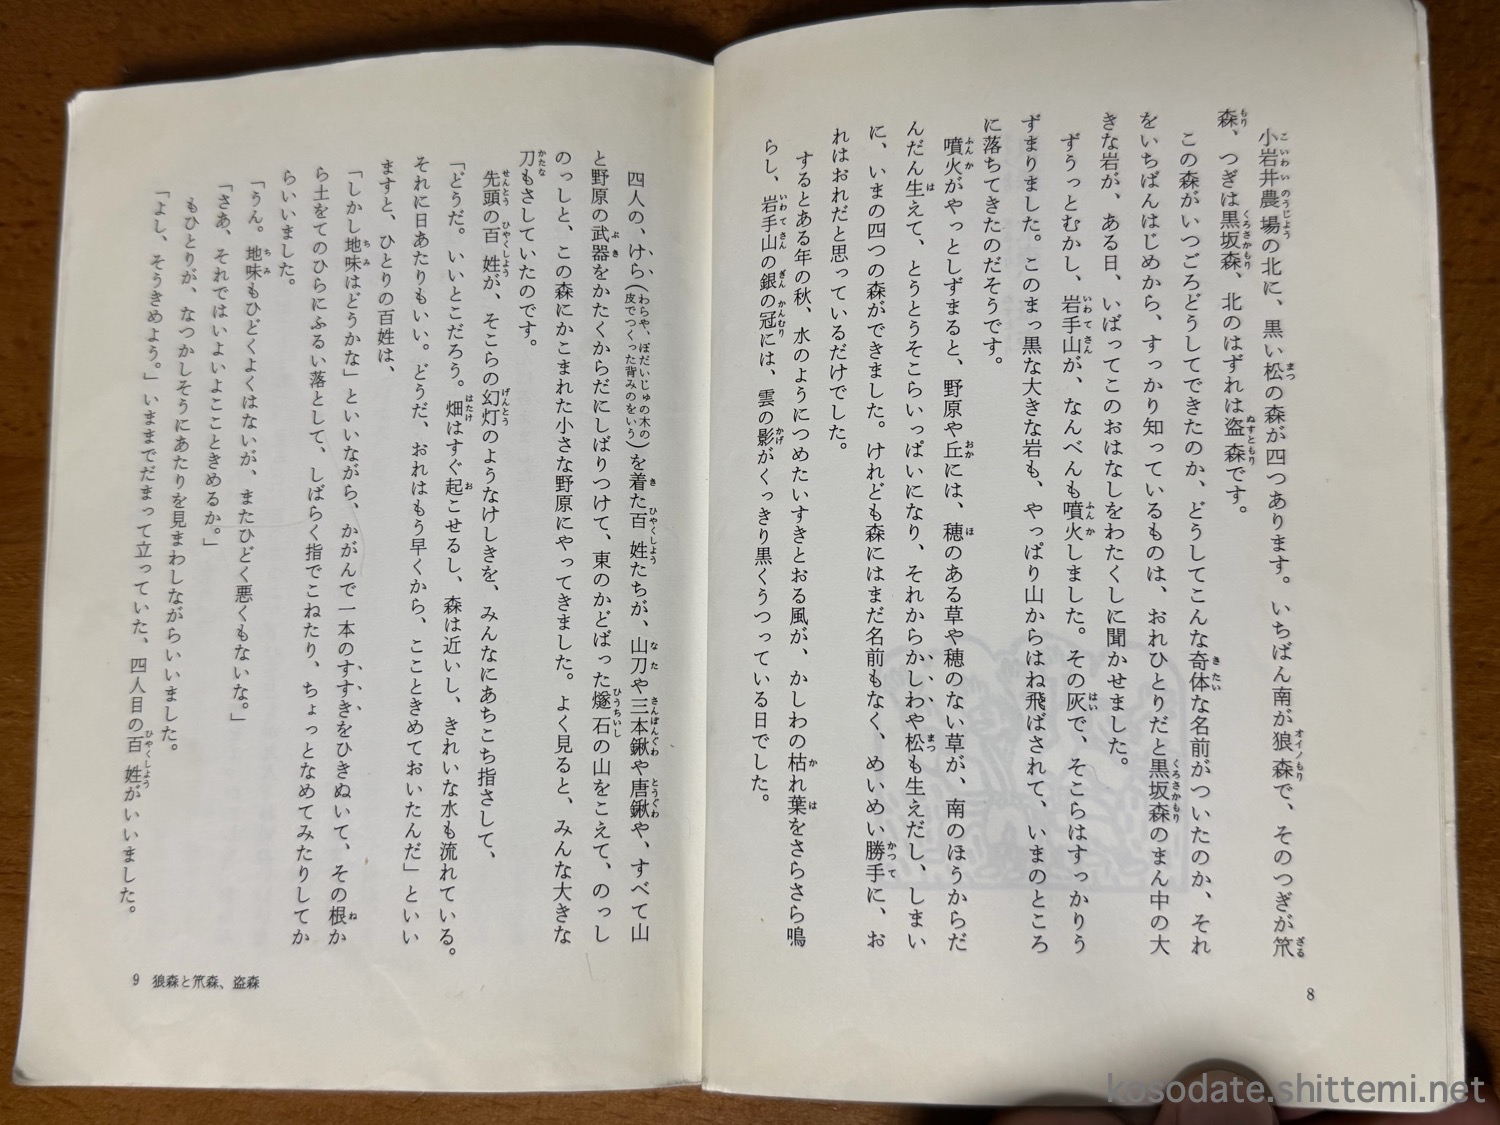 小岩井農場の北に、黒い松の森が四つあります。いちばん南が狼森で、そのつぎが笊
森、つぎは黒坂森、北のはずれは盗森です。
この森がいつごろどうしてできたのか、どうしてこんな奇体な名前がついたのか、それ
をいちばんはじめから、すっかり知っているものは、おれひとりだと黒坂森のまん中の大
きな岩が、ある日、いばってこのおはなしをわたくしに聞かせました。
ずうっとむかし、岩手山が、なんべんも噴火しました。その灰で、そこらはすっかりう
ずまりました。このまっ黒な大きな岩も、やっぱり山からはね飛ばされて、いまのところ
に落ちてきたのだそうです。
噴火がやっとしずまると、野原や丘には、穂のある草や穂のない草が、南のほうからだ
んだん生えて、とうとうそこらいっぱいになり、それからかしわや松も生えだし、しまい
に、いまの四つの森ができました。けれども森にはまだ名前もなく、めいめい勝手に、お
れはおれだと思っているだけでした。
するとある年の秋、水のようにつめたいすきとおる風が、かしわの枯れ葉をさらさら鳴
らし、岩手山の銀の冠には、雲の影がくっきり黒くうつっている日でした。
8
四人の、けら（わらや、ぼだいじゅの木の皮でつくった背みのをいう）を着た百姓たちが、山刀や三本鍬や唐鍬や、すべて山
と野原の武器をかたくからだにしばりつけて、東のかどばった燧石の山をこえて、のっし
のっしと、この森にかこまれた小さな野原にやってきました。よく見ると、みんな大きな
刀もさしていたのです。
先頭の百姓が、そこらの幻灯のようなけしきを、みんなにあちこち指さして、
「どうだ。いいとこだろう。畑はすぐ起こせるし、森は近いし、きれいな水も流れている。
それに日あたりもいい。どうだ、おれはもう早くから、こことときめておいたんだ」といい
ますと、ひとりの百姓は、
「しかし地味はどうかな」といいながら、かがんで一本のすすきをひきぬいて、その根か
ら土をてのひらにふるい落として、しばらく指でこねたり、ちょっとなめてみたりしてか
らいいました。
「うん。地味もひどくよくはないが、またひどく悪くもないな。」
「さあ、それではいよいよこことときめるか。」
もひとりが、なつかしそうにあたりを見まわしながらいいました。
「よし、そうきめよう。」いままでだまって立っていた、四人目の百姓がいいました。
9 狼森と笊森、盗森
kosodate.shittemi.net